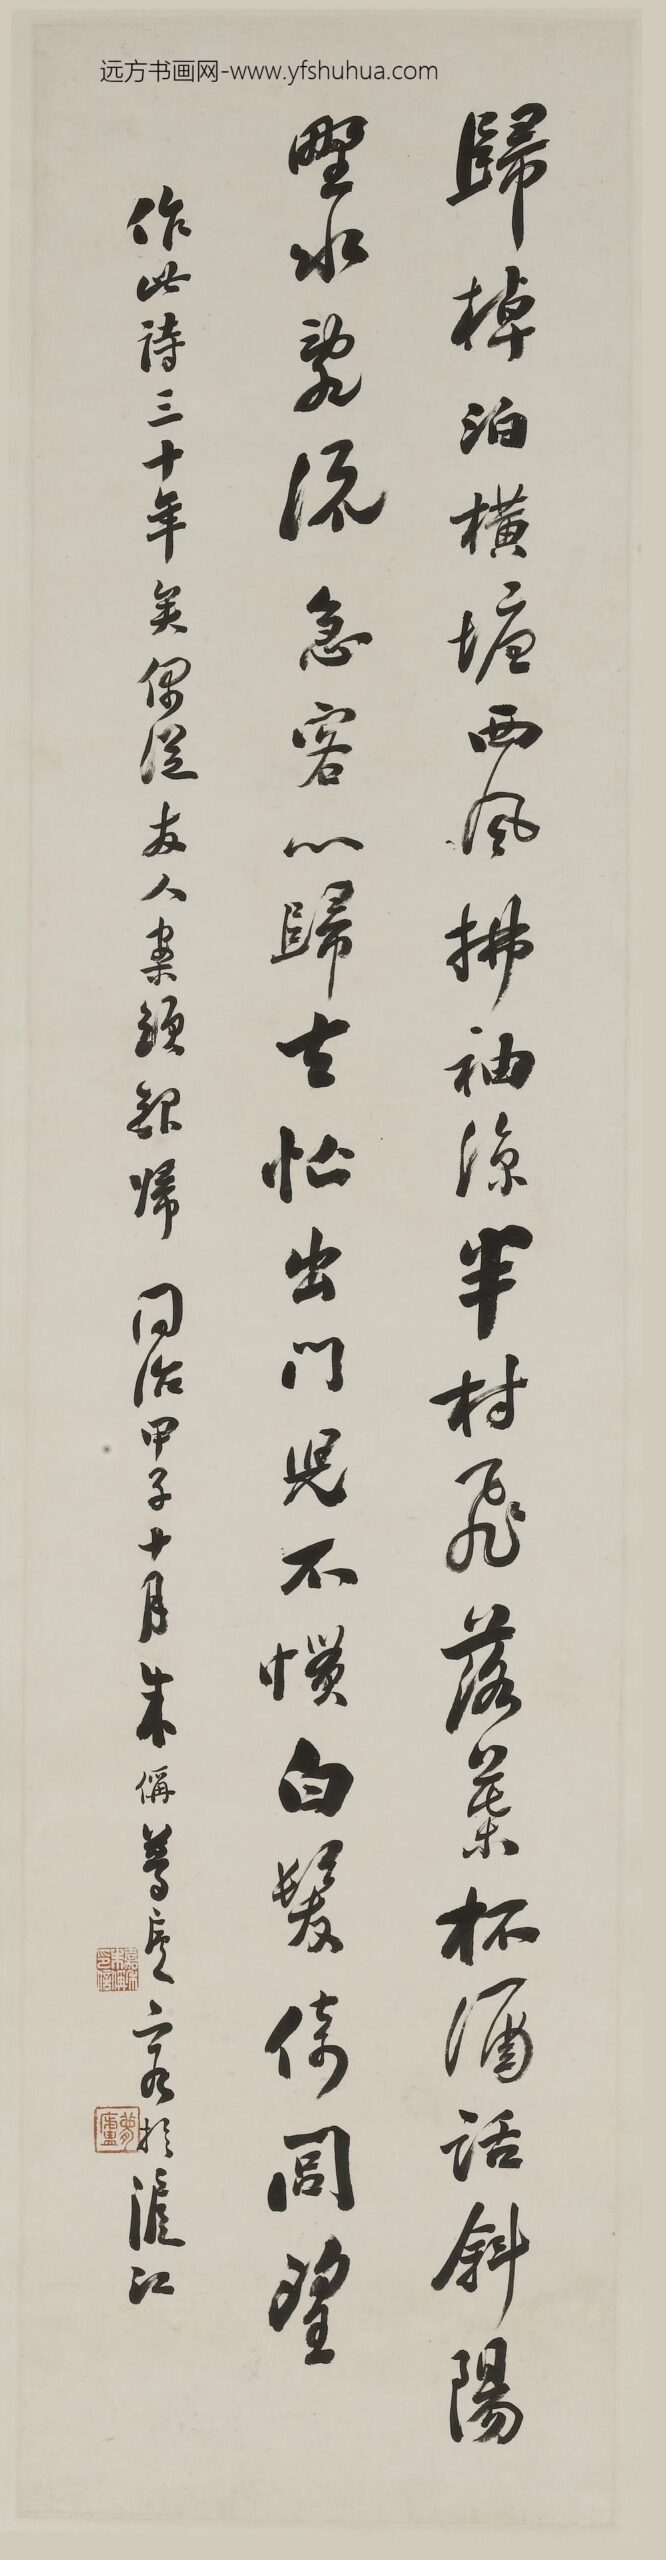 远方书画网-www.yfshuhua.com
歸棹泊橫塘西風拂袖涼半村飛落葉杯酒話斜陽
野水亂流急客心歸去忙出門兒不慣白髮倚閭望
作此詩三十年矣偶從友人案頭錄歸 同治甲子十月朱偁夢廬客於滬江
夢廬